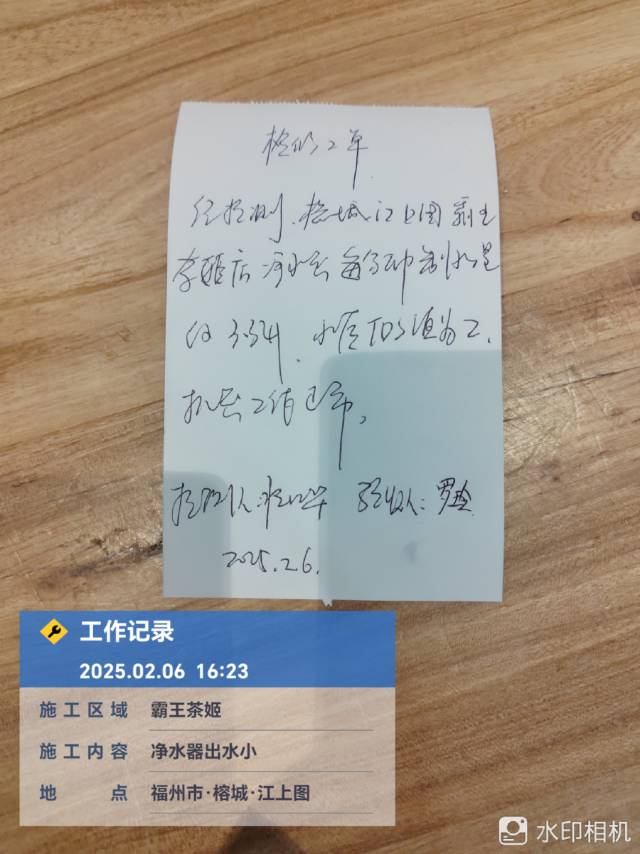 检修工单
经检测,榕城江上图霸王
茶姬店净水器每分钟制水量
约3.54,水质TDS值为2,
机器工作正常,
检测人: 验收人:罗
2025.2.6.
工作记录
2025.02.06 16:23
施工区域 霸王茶姬
施工内容 净水器出水小
地点 福州市·榕城·江上图
水印相机